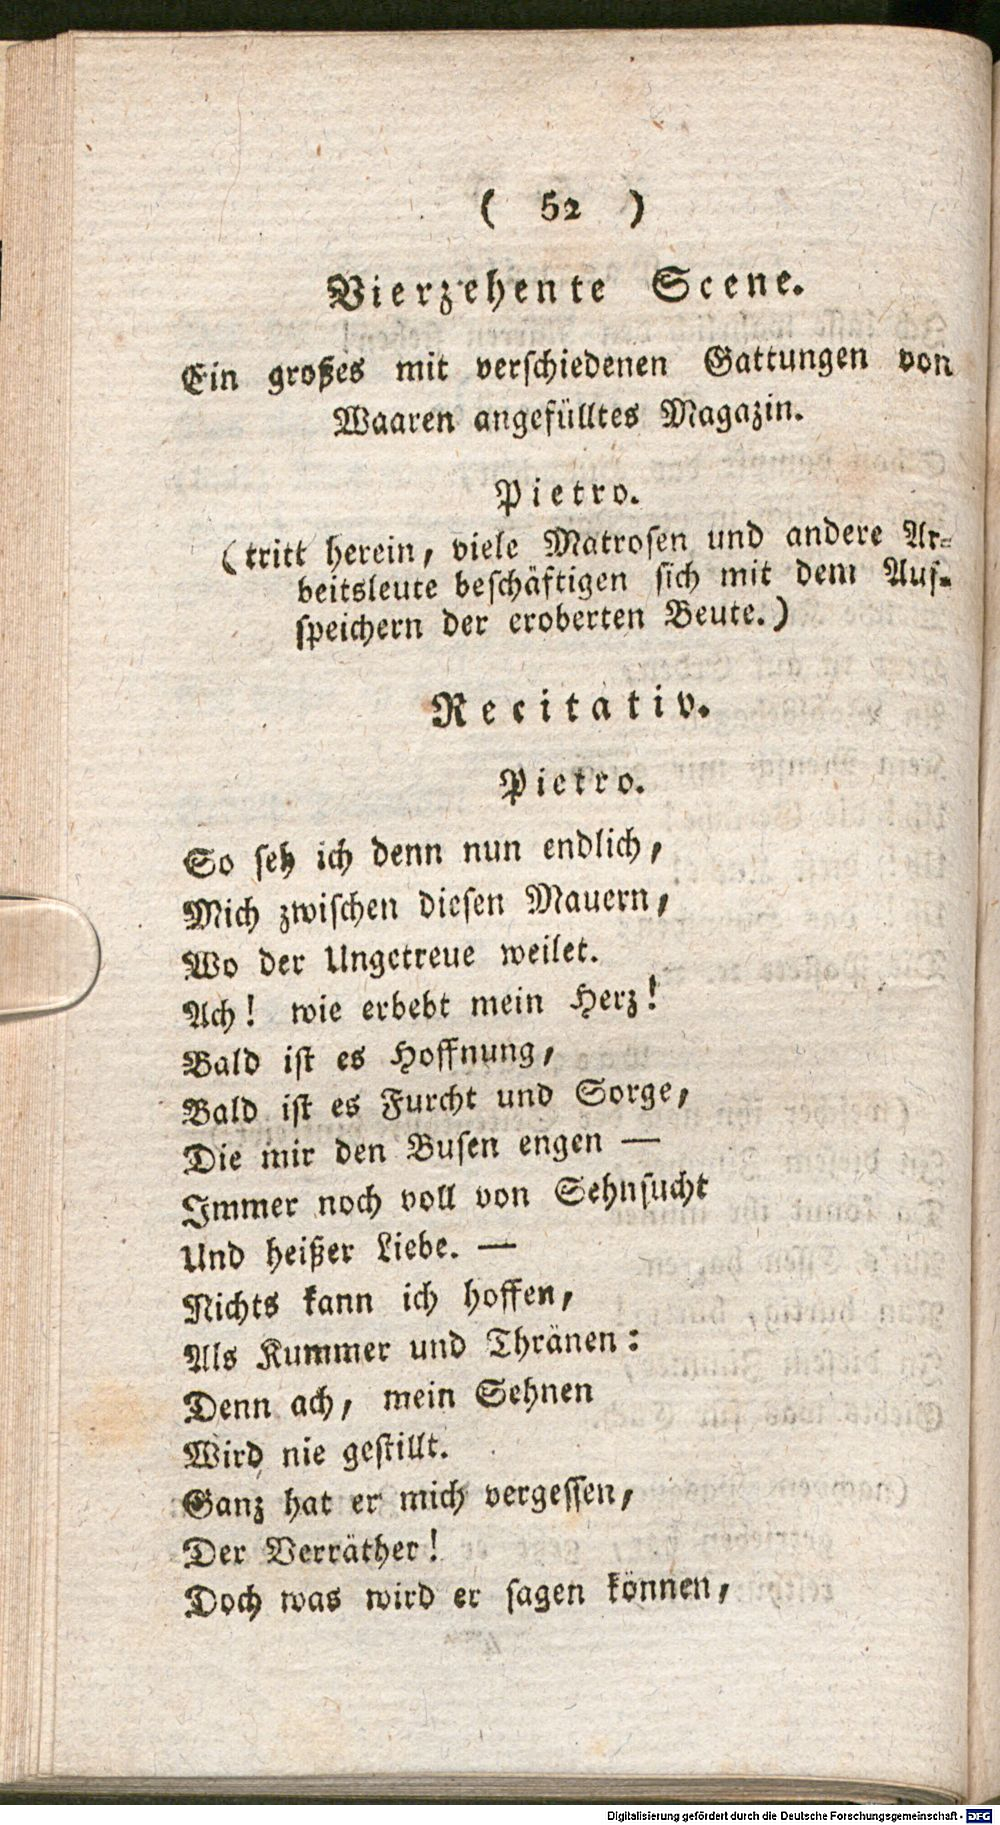 ( 52 )
Vierzehente Scene.
Ein großes mit verschiedenen Gattungen von
Waaren angefülltes Magazin.
Pietro.
(tritt herein, viele Matrosen und andere Ar-
beitsleute beschäftigen sich mit dem Auf-
speichern der eroberten Beute.)
Recitativ.
Pietro.
So seh ich denn nun endlich,
Mich zwischen diesen Mauern,
Wo der Ungetreue weilet.
Ach! wie erbebt mein Herz!
Bald ist es Hoffnung,
Bald ist es Furcht und Sorge,
Die mir den Busen engen —
Immer noch voll von Sehnsucht
Und heißer Liebe. —
Nichts kann ich hoffen,
Als Kummer und Thränen:
Denn ach, mein Sehnen
Wird nie gestillt.
Ganz hat er mich vergessen,
Der Verräther!
Doch was wird er sagen können,
Digitalisierung gefördert durch die Deutsche Forschungsgemeinschaft - DFG